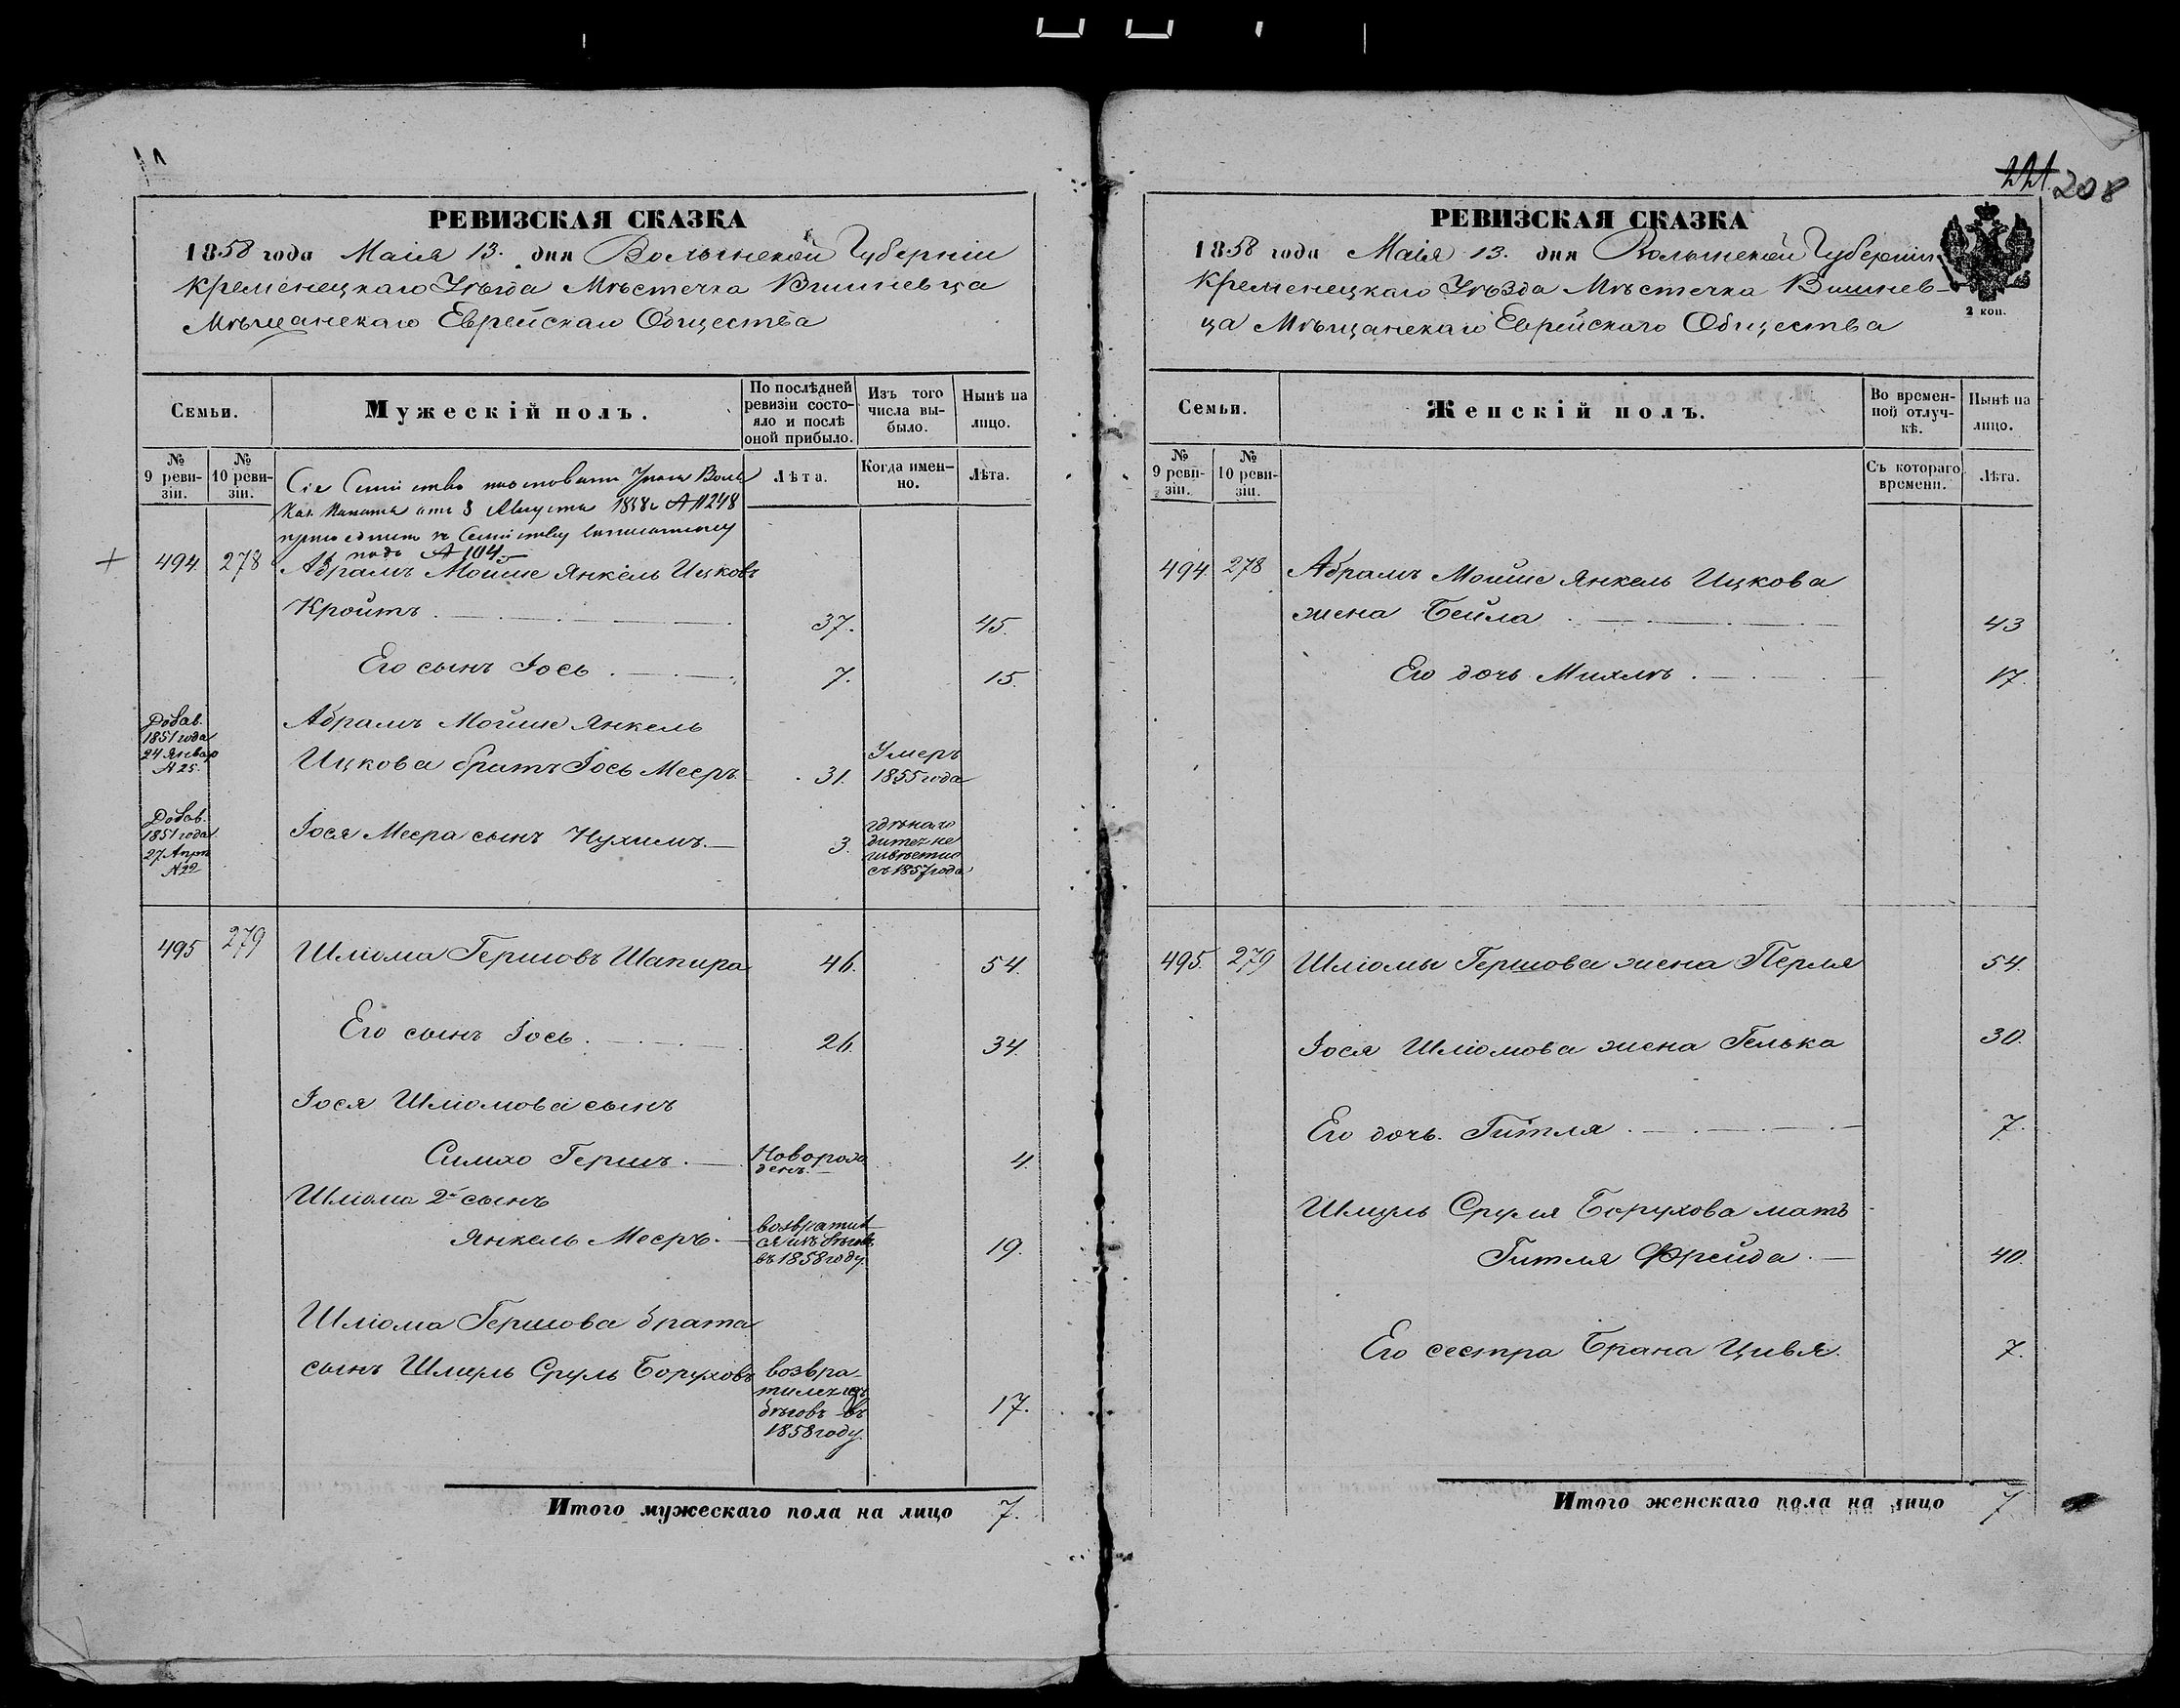 221. 208
РЕВИЗСКАЯ СКАЗКА
1858 года Маія 13. дня Волынской Губерніи
Кременецкаго Уѣзда Мѣстечка Вишневца
Мѣщанскаго Еврейскаго Общества
Семьи.
Мужескій полъ.
По послѣдней ревизіи состо-
яло и послѣ оной прибыло.
Изъ того числа вы-
было.
Нынѣ на лицо.
№ 9 реви-
зіи.
№ 10 реви-
зіи.
Лѣта.
Когда имен-
но.
Лѣта.
Сіе Семейство Указа Вол.
Каз. Палаты отъ 8 Августа 1858 № 11248
къ Семейству
подъ № 104
+ 494. 278 Абрамъ Мойше Янкель Ицковъ
Кройтъ 37. 45.
Его сынъ Іось 7. 15.
Добав.
1851 года
24 Январ
№ 25.
Абрамъ Мойше Янкель
Ицкова братъ Іось Мееръ 31. Умеръ
1855 года
Добав.
1851 года
27 Апрѣ
№ 22
Іося Меера сынъ Нухимъ 3.
гдѣ находится не
извѣстно
съ 1857 года
495 279 Шліома Гершовъ Шапира 46. 54.
Его сынъ Іось 26. 34.
Іося Шліомова сынъ
Симхо Гершъ Новорож
денъ 4.
Шліома 2й сынъ
Янкель Мееръ возвратил
ся изъ бѣговъ
въ 1858 году. 19.
Шліома Гершова брата
сынъ Шмуль Сруль Боруховъ возвра-
тился изъ
бѣговъ въ
1858 году. 17.
Итого мужескаго пола на лицо 7.
РЕВИЗСКАЯ СКАЗКА
1858 года Маія 13. дня Волынской Губерніи
Кременецкаго Уѣзда Мѣстечка Вишнев-
ца Мѣщанскаго Еврейскаго Общества
2 коп.
Семьи.
Женскій полъ.
Во времен-
ной отлуч-
кѣ.
Нынѣ на лицо.
№ 9 реви-
зіи.
№ 10 реви-
зіи.
Съ котораго времени.
Лѣта.
494. 278 Абрамъ Мойше Янкель Ицкова
жена Бейла 43
Его дочь Михлѣ 17.
495. 279 Шліомы Гершова жена Перля 54.
Іося Шліомова жена Гелька 30.
Его дочь Гитля 7.
Шмуль Сруля Борухова мать
Гитля Фрейда 40.
Его сестра Брана Цивя. 7.
Итого женскаго пола на лицо 7